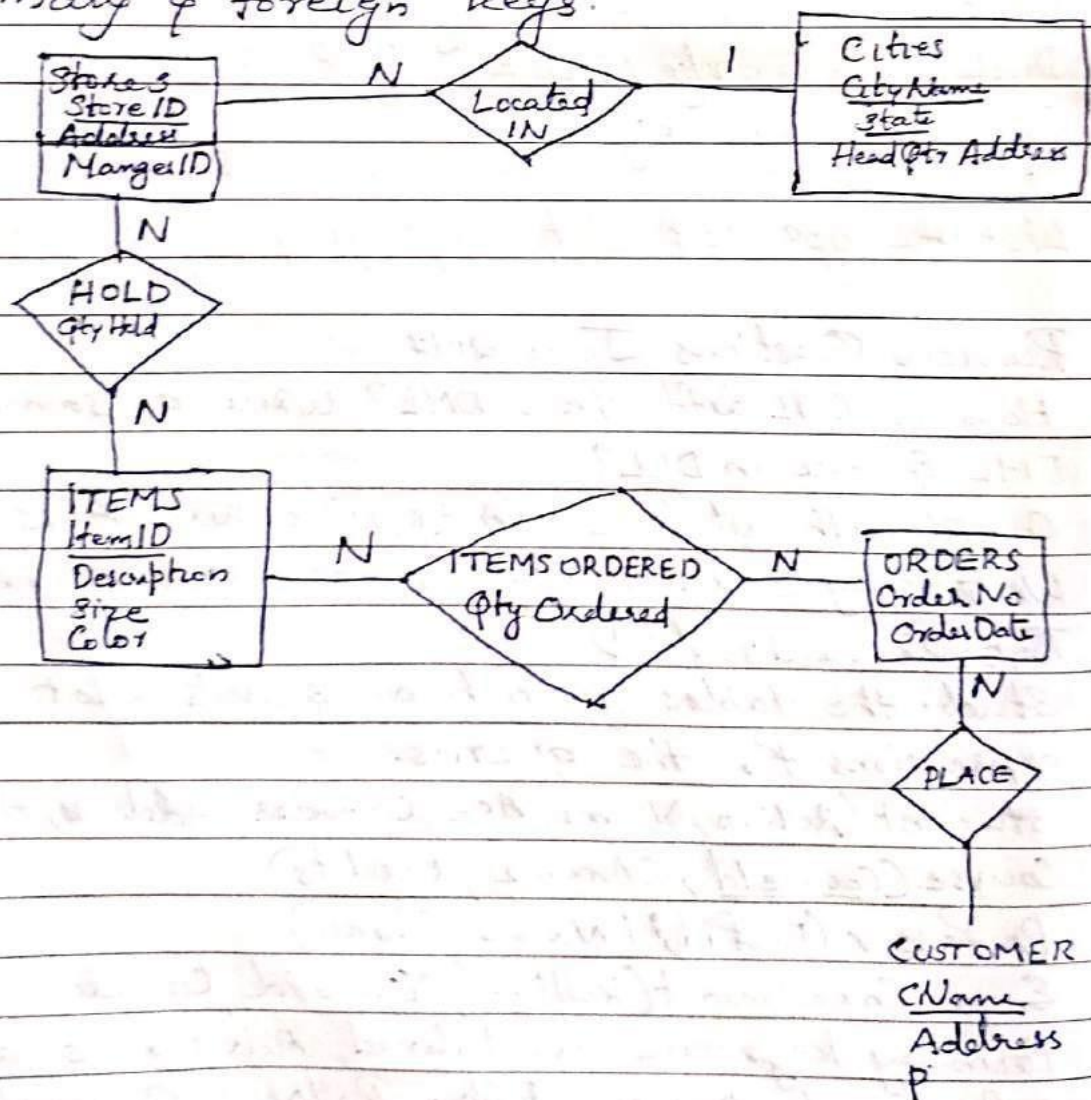 & foreign keys.
Stores
StoreID
Address
MangerID
N
Located
IN
1
Cities
CityName
State
HeadQtr Address
N
HOLD
Qty Held
N
ITEMS
ItemID
Description
Size
Color
N
ITEMS ORDERED
Qty Ordered
N
ORDERS
OrderNo
OrderDate
N
PLACE
CUSTOMER
CName
Address
P